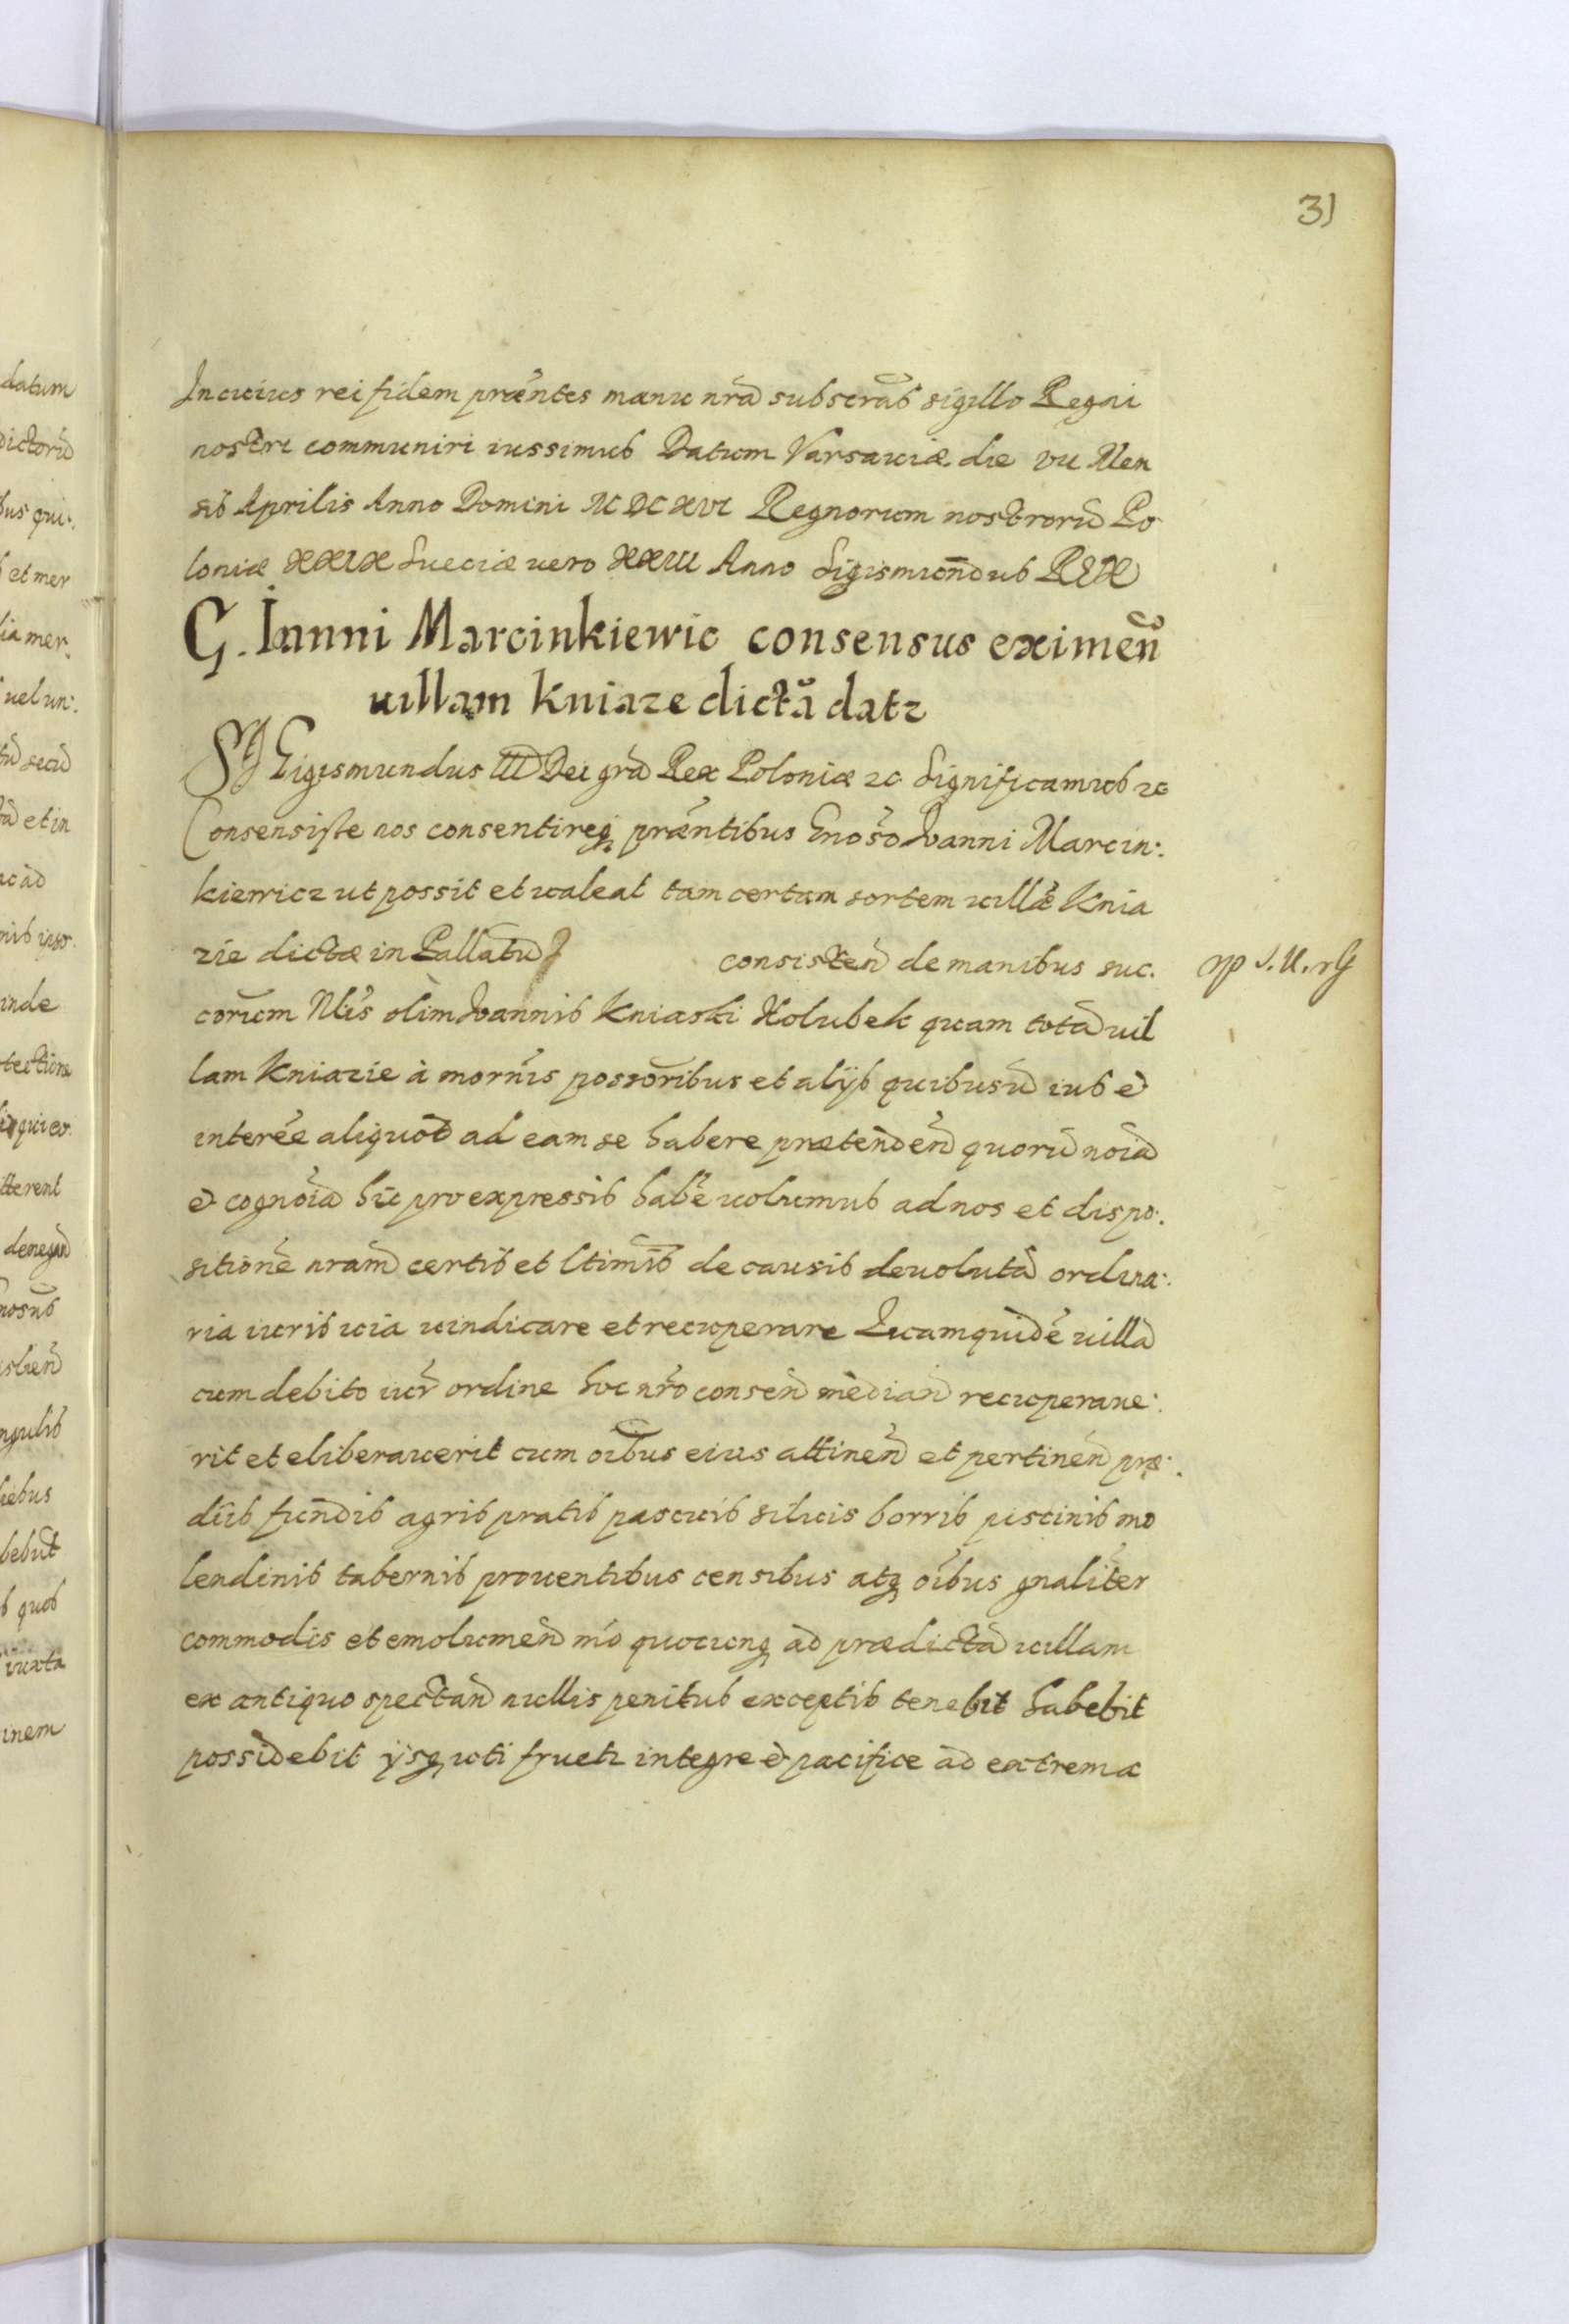 31
In cuius rei fidem præntes manu nrã subscrãs sigillo Regni
nostri communiri iussimus Datum Varsauiæ die VII Men
sis Aprilis Anno Domini MDCXVI Regnorum nostrorũ Po
loniæ XXIX Sueciæ uero XXIII Anno Sigismundus REX
G. Ianni Marcinkiewic consensus eximeñ
uillam kniaze dictã datz
Sigismundus III Dei grã Rex Poloniæ zc Significamus zc
Consensisse nos consentireq; præntibus Gnoso Ioanni Marcin:
kiewicz ut possit et ualeat tam certam sortem uillæ Knia
zie dictæ in Pallatũ consisteñ de manibus suc.
corum Nlis olim Ioannis Kniaski Holubek quam totã uil
lam Kniazie à mornis possoribus et alijs quibusuã ius et
interée aliquod ad eam se habere prætendeñ quorũ noiã
et cognoiã hic pro expressis habe uolumus ad nos et dispo:
sitionẽ nrãm certis et ltimis de causis deuolutã ordina:
ria iuris uia uindicare et recuperare Quamquidẽ uillã
cum debito iur ordine hoc nro conseñ mediañ recuperaue:
rit et eliberauerit cum oibus eius attineñ et pertineñ præ:
diis fundis agris pratis pascuis siluis borris piscinis mo
lendinis tabernis prouentibus censibus atq; oibus gnaliter
commodis et emolumeñ mo quocunq; ad prædictã uillam
ex antiquo spectañ nullis penitus exceptis tenebit habebit
possidebit ijsq; uti fruetz integre et pacifice ad extrema